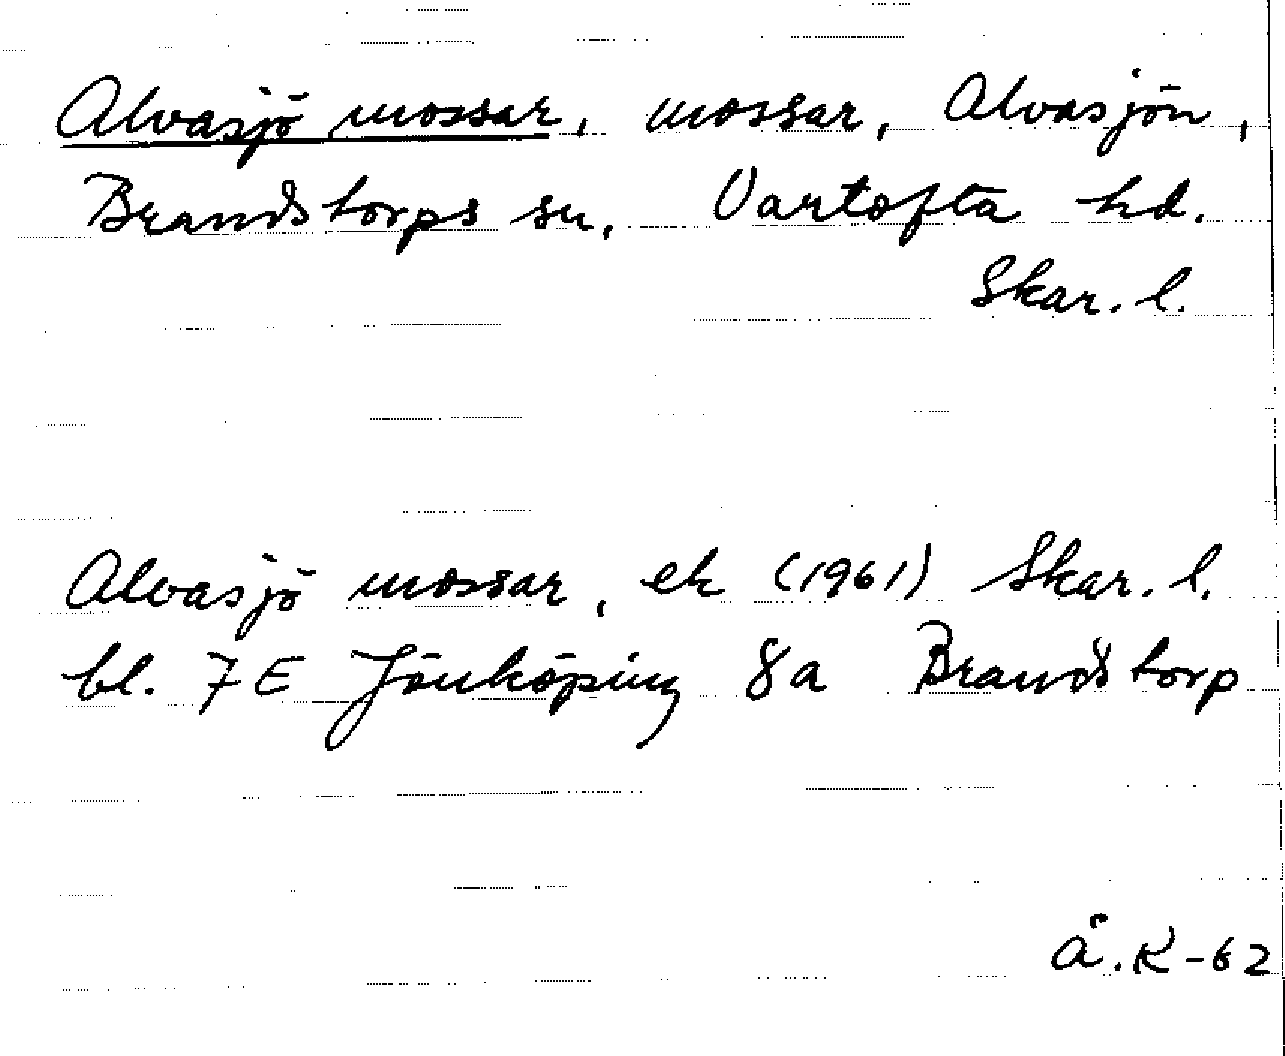 Alvasjö mossar, mossar, Alvasjön,
Brandstorps sn, Vartofta hd.
Skar. l.
Alvasjö mossar, ek (1961) Skar. l.
bl. 7E Jönköping 8a Brandstorp
Ä.K-62